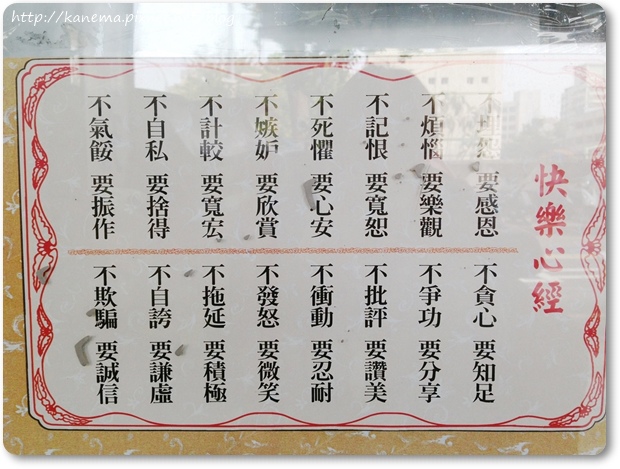 http://kanema.p
快樂心經
不埋怨 要感恩
不煩惱 要樂觀
不記恨 要寬恕
不死懼 要心安
不嫉妒 要欣賞
不計較 要寬宏
不自私 要捨得
不氣餒 要振作
不貪心 要知足
不爭功 要分享
不批評 要讚美
不衝動 要忍耐
不發怒 要微笑
不拖延 要積極
不自誇 要謙虛
不欺騙 要誠信